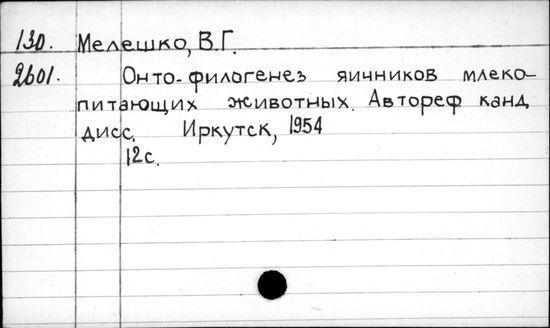 130. Мелешко, В.Г.
2601. Онто-филогенез яичников млеко-
питающих животных. Автореф канд
дисс. Иркутск, 1954
12с.